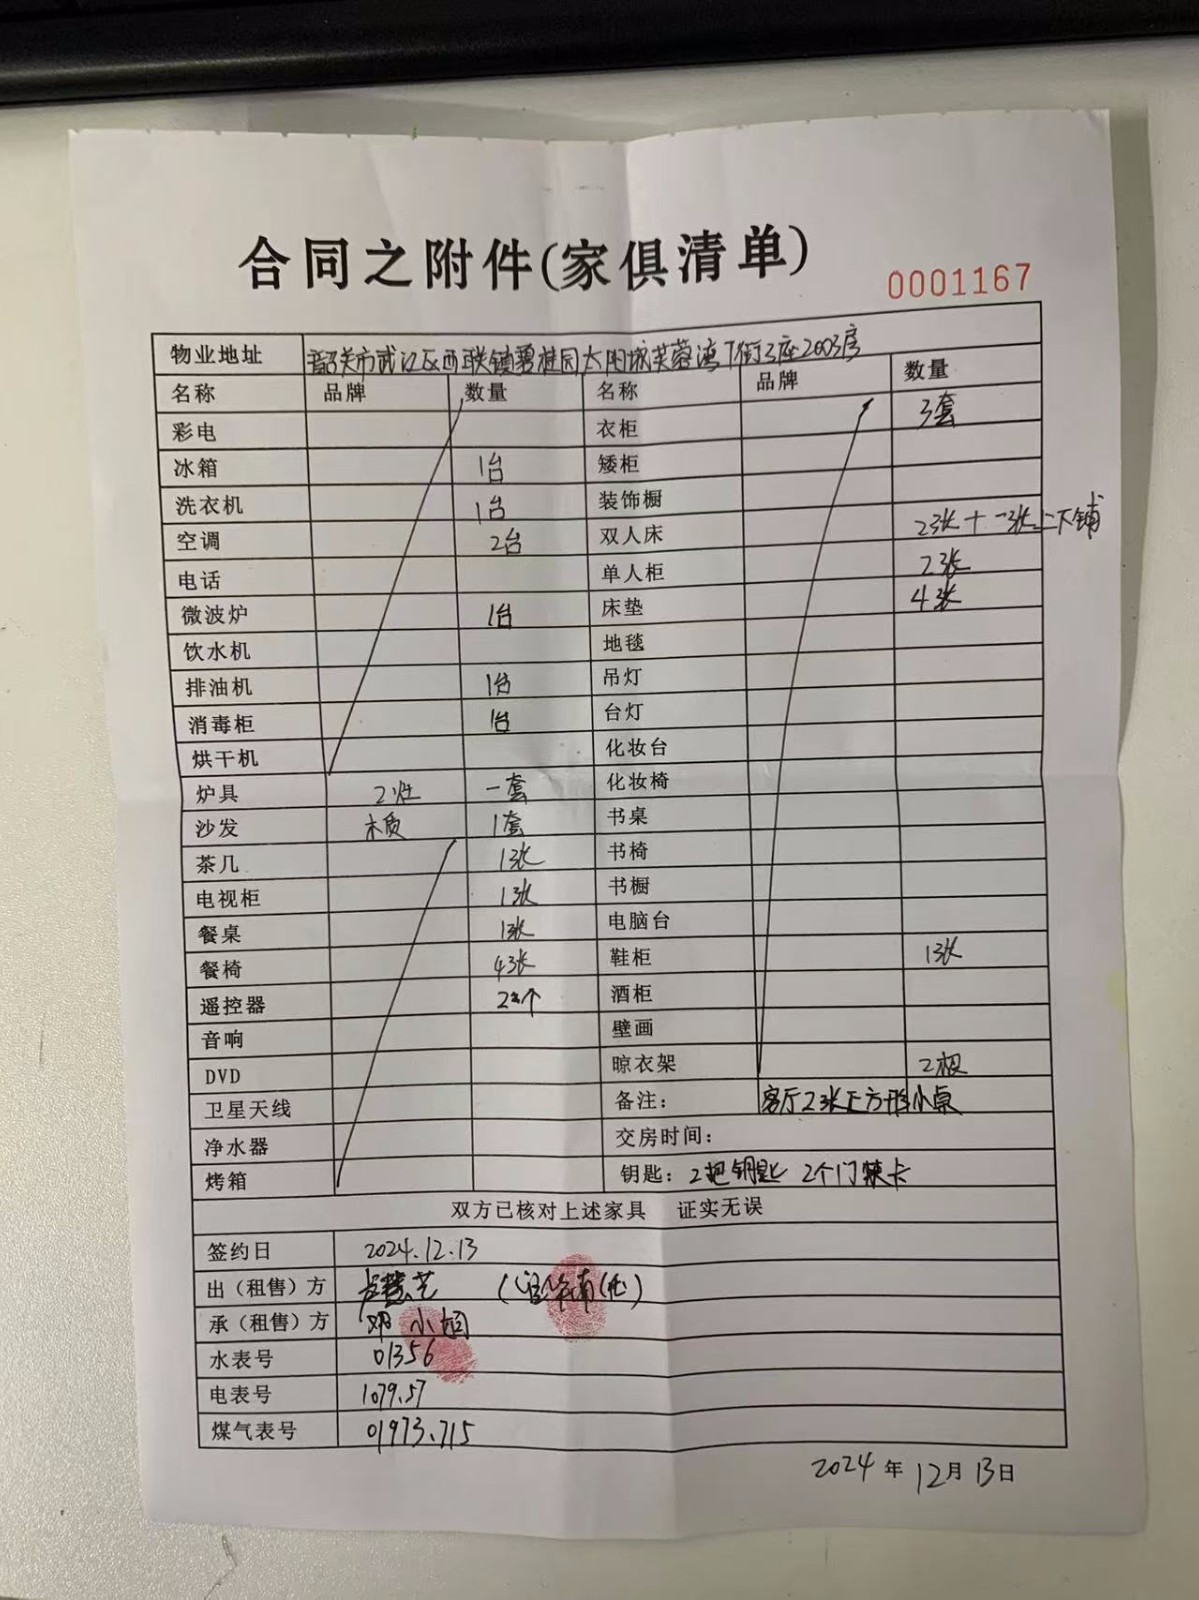 合同之附件(家俱清单)
0001167
物业地址 韶关市武江区西联镇碧桂园太阳城芙蓉湾丁街3座2003房
名称 品牌 数量 名称 品牌 数量
彩电 衣柜 3套
冰箱 1台 矮柜
洗衣机 1台 装饰橱
空调 2台 双人床 2张+一张上下铺
电话 单人柜 2张
微波炉 1台 床垫 4张
饮水机 地毯
排油机 1台 吊灯
消毒柜 1台 台灯
烘干机 化妆台
炉具 2灶 一套 化妆椅
沙发 木质 1套 书桌
茶几 1张 书椅
电视柜 1张 书橱
餐桌 1张 电脑台
餐椅 4张 鞋柜 1张
遥控器 2个 酒柜
音响 壁画
DVD 晾衣架 2根
卫星天线 备注: 客厅2张正方形小桌
净水器 交房时间:
烤箱 钥匙: 2把钥匙 2个门禁卡
双方已核对上述家具 证实无误
签约日 2024.12.13
出(租售)方 卢慧艺
承(租售)方 邓小
水表号 01356
电表号 1079.57
煤气表号 01973.715
2024年12月13日